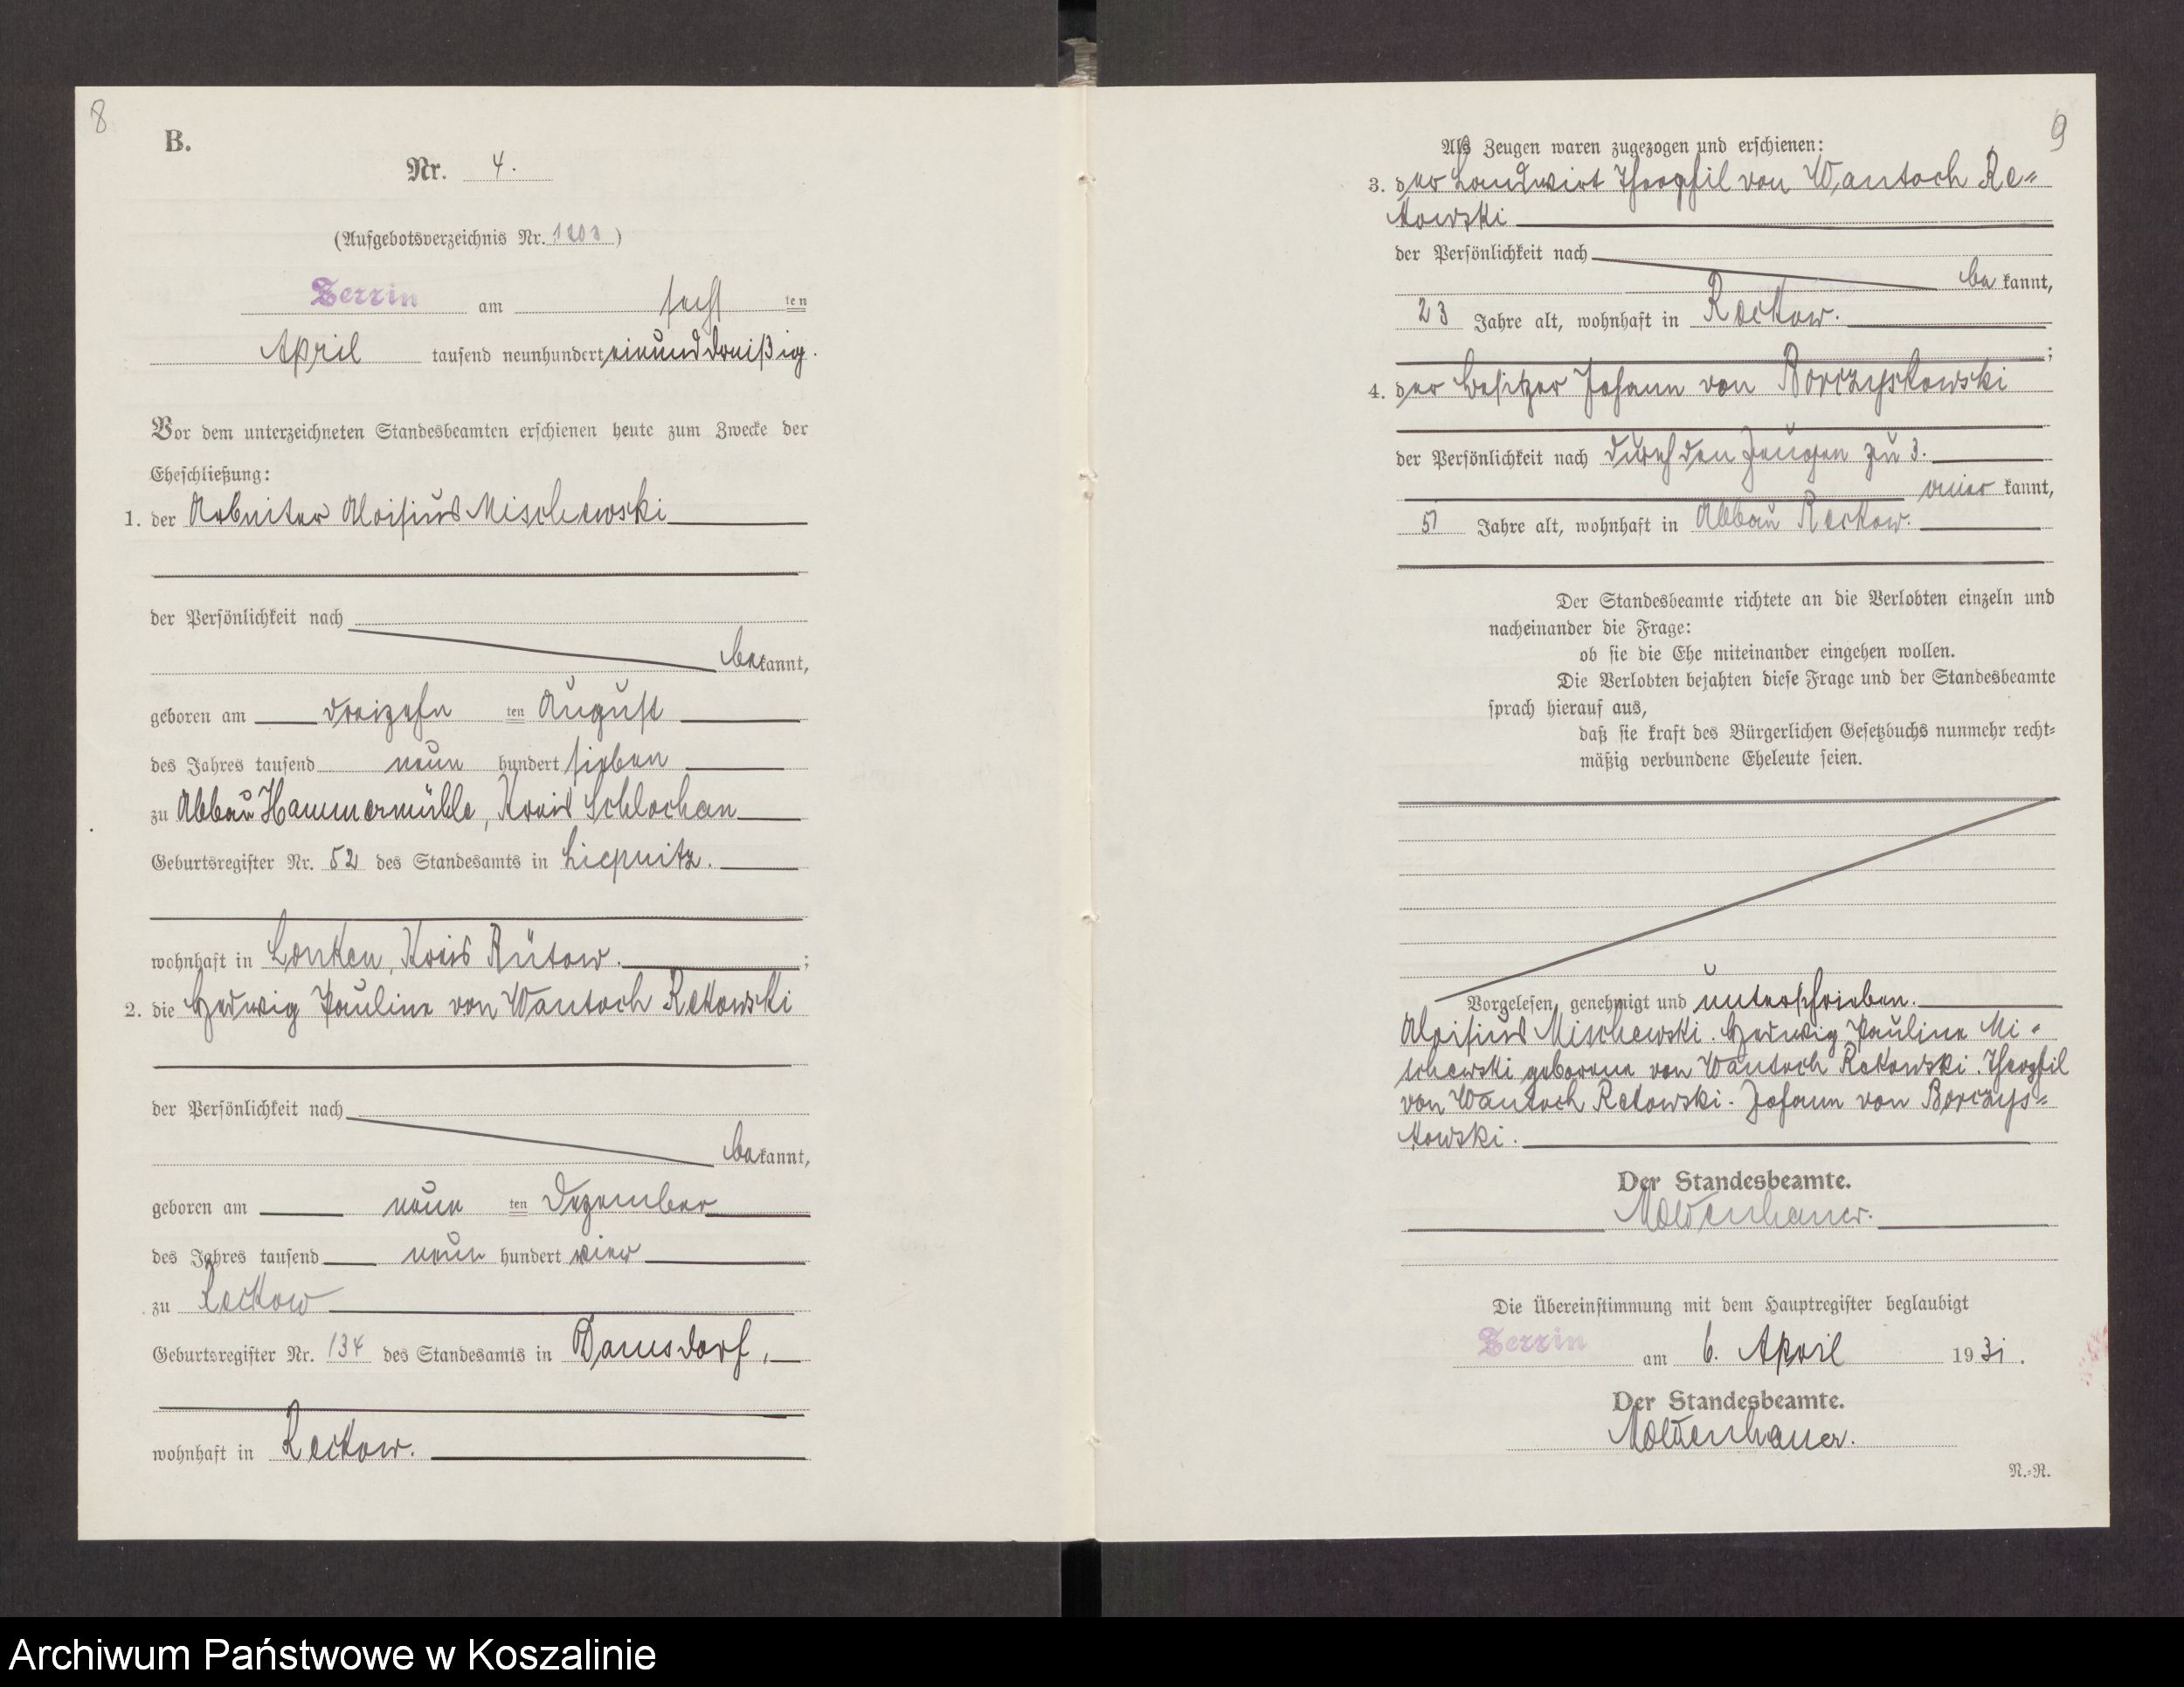 8
B.
Nr. 4.
(Aufgebotsverzeichnis Nr.)
Zerrin am sechsten
April tausend neunhundert einunddreißig.
Vor dem unterzeichneten Standesbeamten erschienen heute zum Zwecke der
Eheschließung:
1. der Arbeiter Aloisius Mischewski
der Persönlichkeit nach
bekannt,
geboren am dreizehnten August
des Jahres tausend neun hundert sieben
zu Abbau Hammermühle, Kreis Schlochau
Geburtsregister Nr. 52 des Standesamts in Liepnitz.
wohnhaft in Lonken, Kreis Bütow.;
2. die Hedwig Pauline von Wantoch Rekowski
der Persönlichkeit nach
bekannt,
geboren am neunten Dezember
des Jahres tausend neun hundert vier
zu Reckow
Geburtsregister Nr. 134 des Standesamts in Damsdorf,
wohnhaft in Reckow.
9
Als Zeugen waren zugezogen und erschienen:
3. der Landwirt Theophil von Wantoch Re=
kowski
der Persönlichkeit nach
bekannt,
23 Jahre alt, wohnhaft in Reckow.
;
4. der Besitzer Johann von Borczyskowski
der Persönlichkeit nach durch den Zeugen zu 3.
anerkannt,
51 Jahre alt, wohnhaft in Abbau Reckow.
Der Standesbeamte richtete an die Verlobten einzeln und
nacheinander die Frage:
ob sie die Ehe miteinander eingehen wollen.
Die Verlobten bejahten diese Frage und der Standesbeamte
sprach hierauf aus,
daß sie kraft des Bürgerlichen Gesetzbuchs nunmehr recht=
mäßig verbundene Eheleute seien.
Vorgelesen, genehmigt und unterschrieben.
Aloisius Mischewski. Hedwig Pauline Mi=
schewski geborene von Wantoch Rekowski. Theophil
von Wantoch Rekowski. Johann von Borczys=
kowski.
Der Standesbeamte.
Moldenhauer.
Die Übereinstimmung mit dem Hauptregister beglaubigt
Zerrin am 6. April 1931.
Der Standesbeamte.
Moldenhauer.
N.=R.
Archiwum Państwowe w Koszalinie